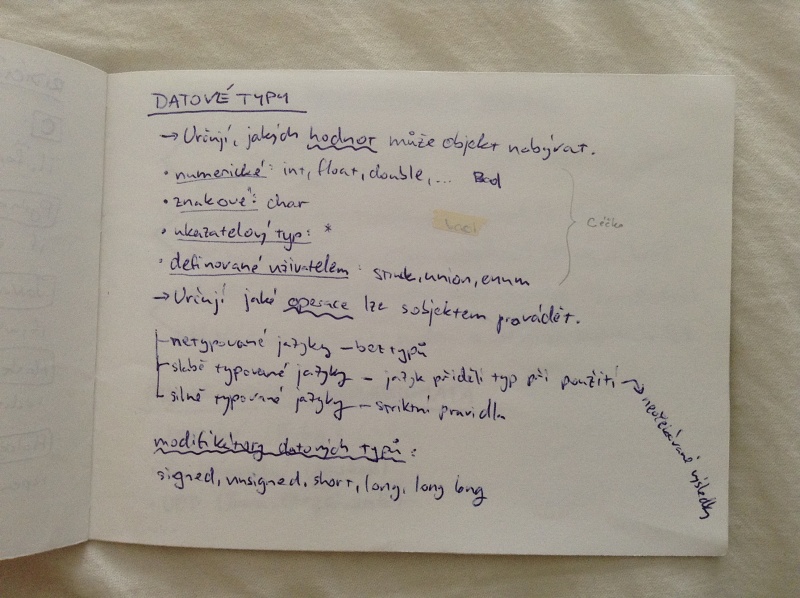 DATOVÉ TYPY
→ Určují, jakých hodnot může objekt nabývat.
• numerické: int, float, double, ... Bool
• znakové: char
• ukazatelový typ: *
• definované uživatelem: struk, union, enum
Céčko
→ Určují jaké operace lze s objektem provádět.
netypované jazyky – bez typů
slabě typované jazyky – jazyk přidělí typ při použití → neočekávané výsledky
silně typované jazyky – striktní pravidla
modifikátory datových typů:
signed, unsigned, short, long, long long